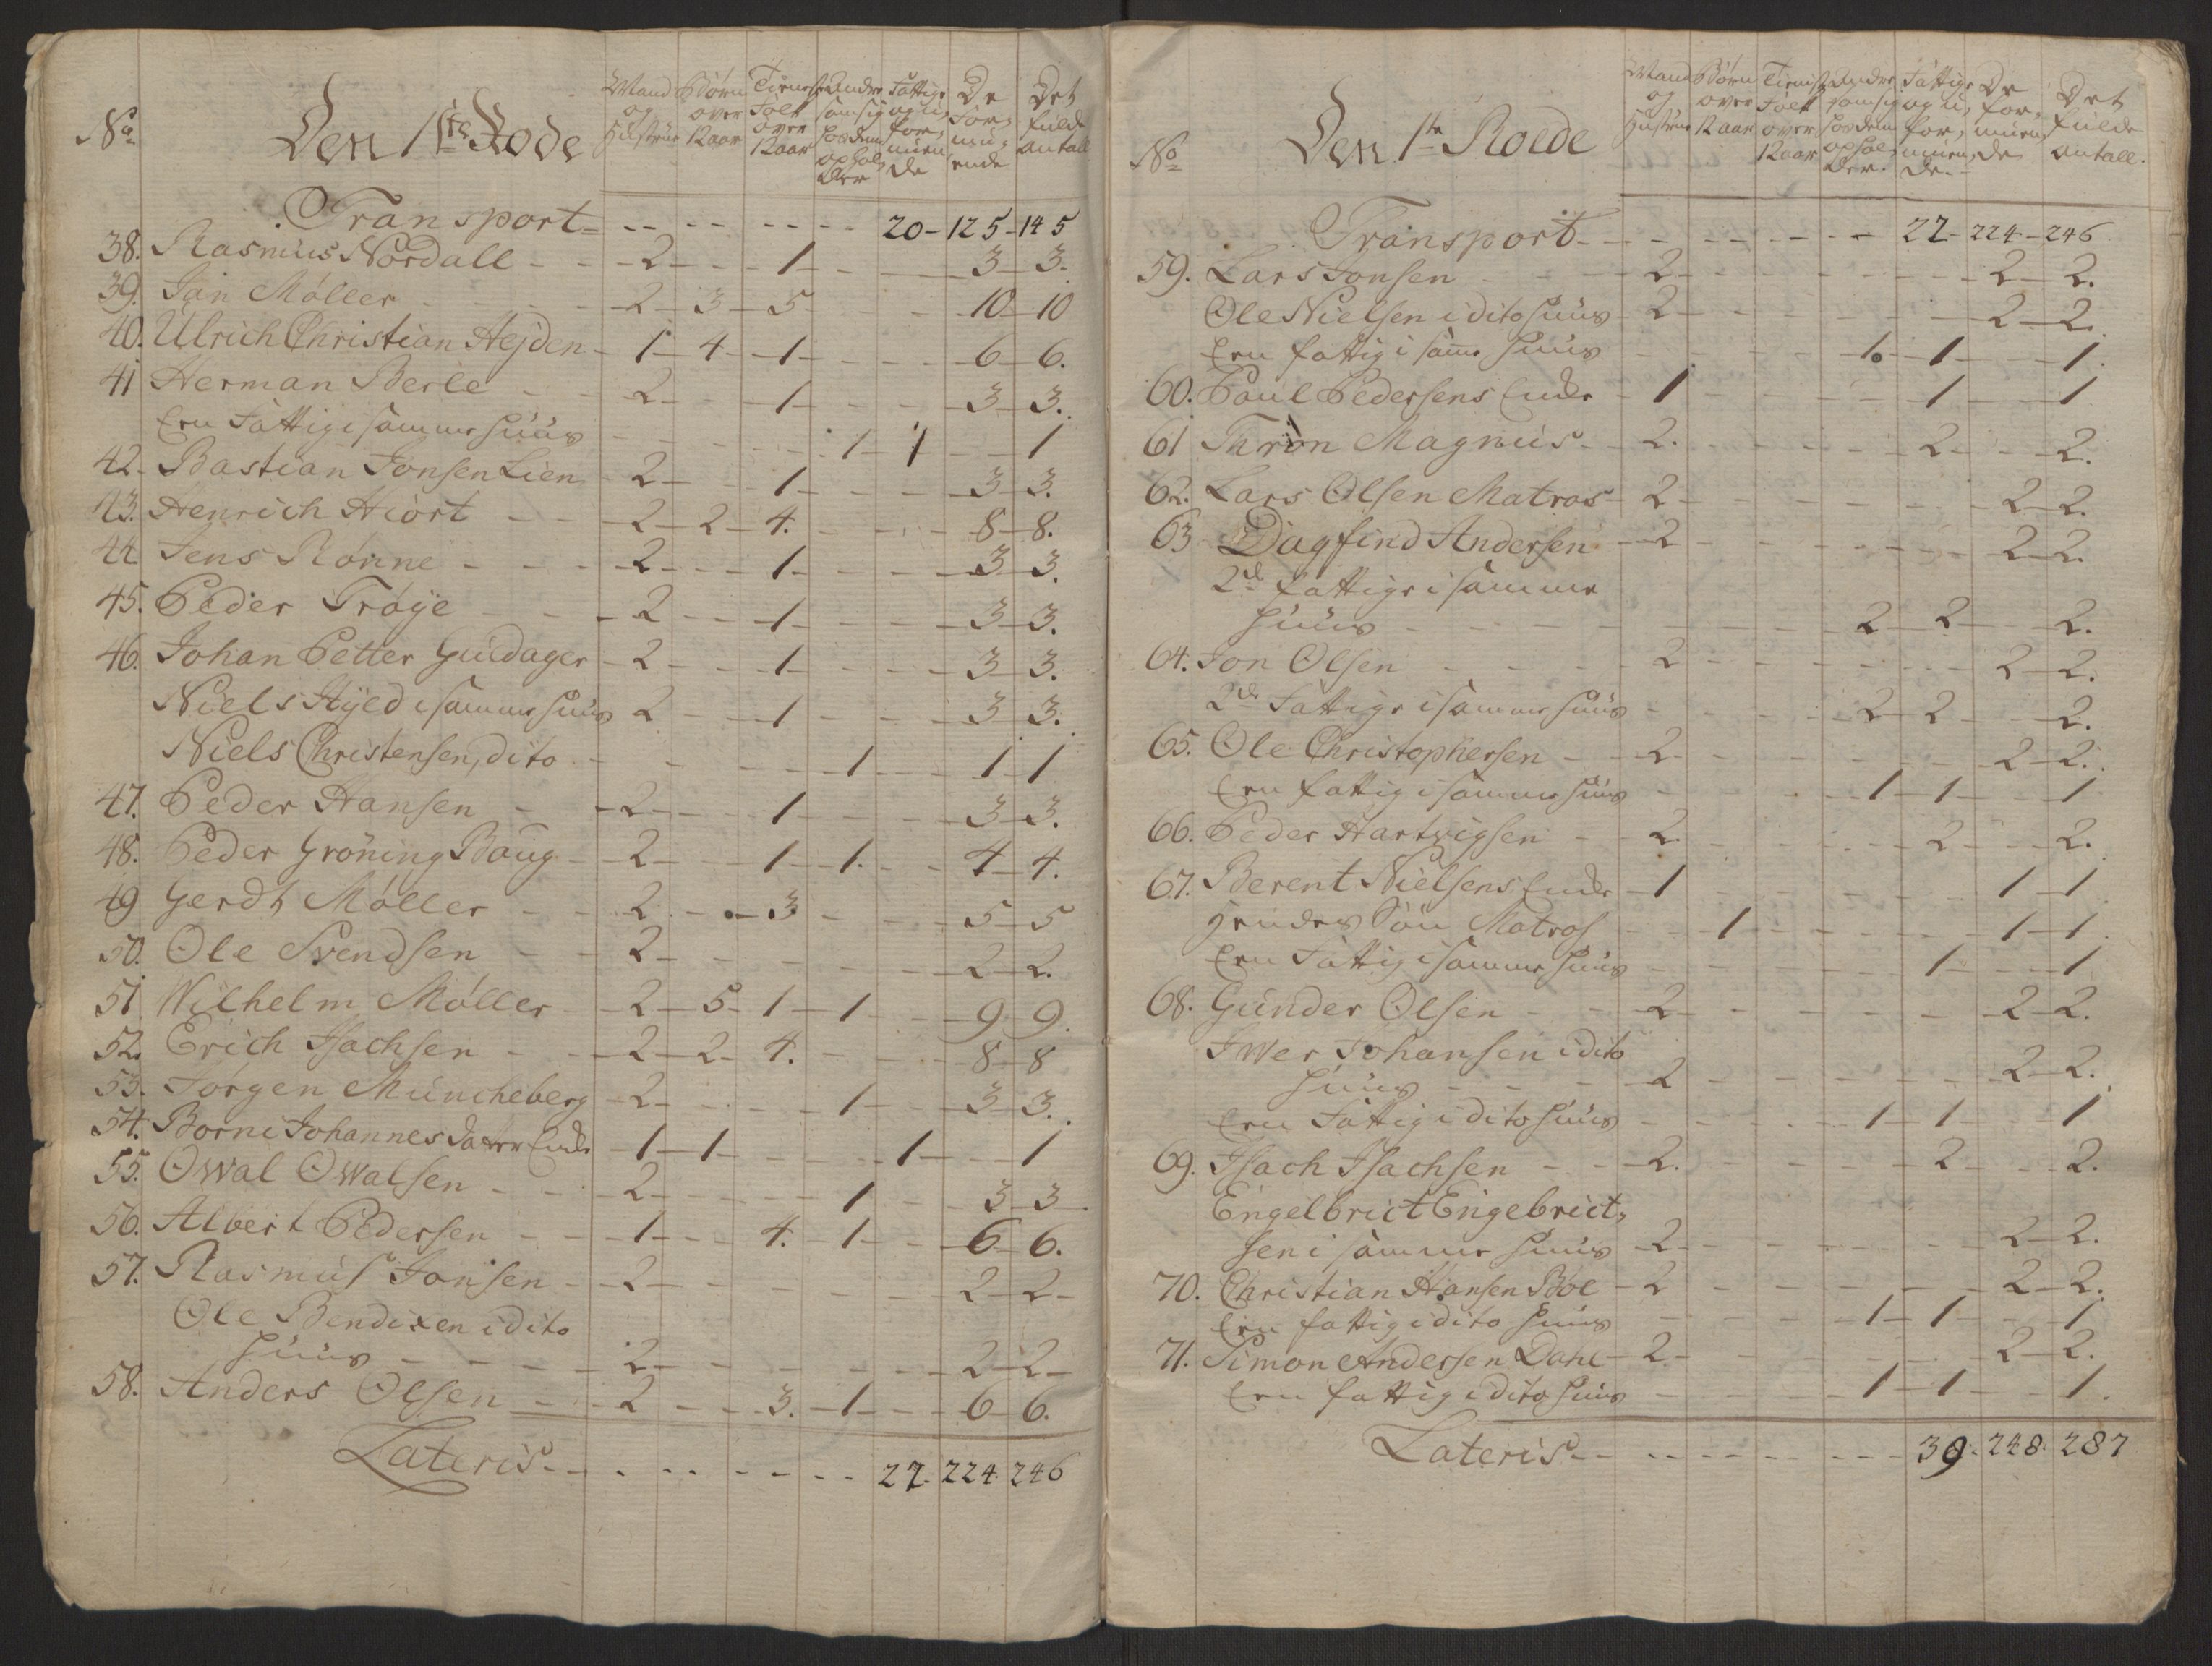 No
Den 1ste Rode
Mand og Hustrue
Børn over 12 aar
Tieneste Folk over 12 aar
Andre som sig hos dem opholder
Fattige og uformuende
De Formuende
Det fulde Antall
Transport - - - - 20 - 125 - 145
38. Rasmus Nordall - 2 - 1 - 3 - 3.
39. Jan Møller - 2 - 3 - 5 - 10 - 10
40. Ulrich Christian Hejden - 1 - 4 - 1 - 6 - 6.
41 Herman Berle - 2 - 1 - 3 - 3.
Een Fattig i samme Huus - 1 - 1 - 1
42. Bastian Jonsen Lien - 2 - 1 - 3 - 3.
43. Henrich Hiort - 2 - 2 - 4. - 8 - 8.
44 Jens Rønne - 2 - 1 - 3 - 3.
45. Peder Trøye - 2 - 1 - 3 - 3.
46. Johan Petter Guldager - 2 - 1 - 3 - 3.
Niels Hyed i samme Huus 2 - 1 - 3 - 3.
Niels Christensen, dito - 1 - 1 - 1
47. Peder Hansen - 2 - 1 - 3 - 3.
48. Peder Grøning Baug - 2 - 1 - 1. - 4 - 4.
49 Gerdt Møller - 2 - 3 - 5 - 5
50. Ole Svendsen - 2 - 2 - 2.
51 Wilhelm Møller - 2 - 5 - 1 - 1 - 9 - 9.
52. Erich Isachsen - 2 - 2 - 4. - 8 - 8
53. Jørgen Müncheberg - 2 - 1 - 3 - 3.
54. Borni Johannes Enke - 1 - 1 - 1 - 1
55. Owal Owalsen - 2 - 1 - 3 - 3
56. Albert Pedersen - 1 - 4. - 1 - 6 - 6.
57. Rasmus Jonsen - 2 - 2 - 2 -
Ole Bendixen i dito
Huus - 2 - 2 - 2 -
58. Anders Olsen - 2 - 3. - 1 - 6 - 6.
Lateris - - - - 22 - 224 - 246
No
Den 1te Roede
Mand og Hustrue
Børn over 12 aar
Tieneste Folk over 12 aar
Andre som sig hos dem opholder.
Fattige og uformuende.
De formuende
Det fulde Antall.
Transport - - - - 22 - 224 - 246
59. Lars Jonsen - 2 - 2 - 2.
Ole Nielsen i dito Huus - 2 - 2 - 2.
Een fattig i samme Huus - 1 - 1 - 1.
60. Poul Pedersens Enke - 1 - 1 - 1
61 Thron Magnus - 2. - 2 - 2.
62. Lars Olsen Matros - 2 - 2 - 2.
63 Dagfind Andersen - 2 - 2 - 2.
2de fattige i samme
Huus - 2 - 2 - 2.
64. Jon Olsen - 2 - 2 - 2.
2de Fattige i samme Huus - 2 - 2 - 2.
65. Ole Christophersen - 2 - 2 - 2.
Een fattig i samme Huus - 1 - 1 - 1
66. Peder Hartvigsen - 2. - 2 - 2.
67. Berent Nielsens Enke - 1 - 1 - 1
Hendes Søn Matros - 1 - 1 - 1.
Een Fattig i samme Huus - 1 - 1
68. Gunder Olsen - 2 - 2 - 2.
Iwer Johansen i dito
Huus - 2 - 2 - 2.
Een Fattig i dito Huus - 1 - 1 - 1
69. Isach Isachsen - 2. - 2 - 2.
Engelbrict Engebrict,
sen i samme Huus - 2 - 2 - 2.
70. Christian Hansen Boe - 2 - 2 - 2.
Een fattig i dito Huus - 1 - 1 - 1
71. Simon Andersen Dahl - 2 - 2 - 2.
Een fattig i dito Huus - 1 - 1 - 1.
Lateris - - - - 39 - 248. 287